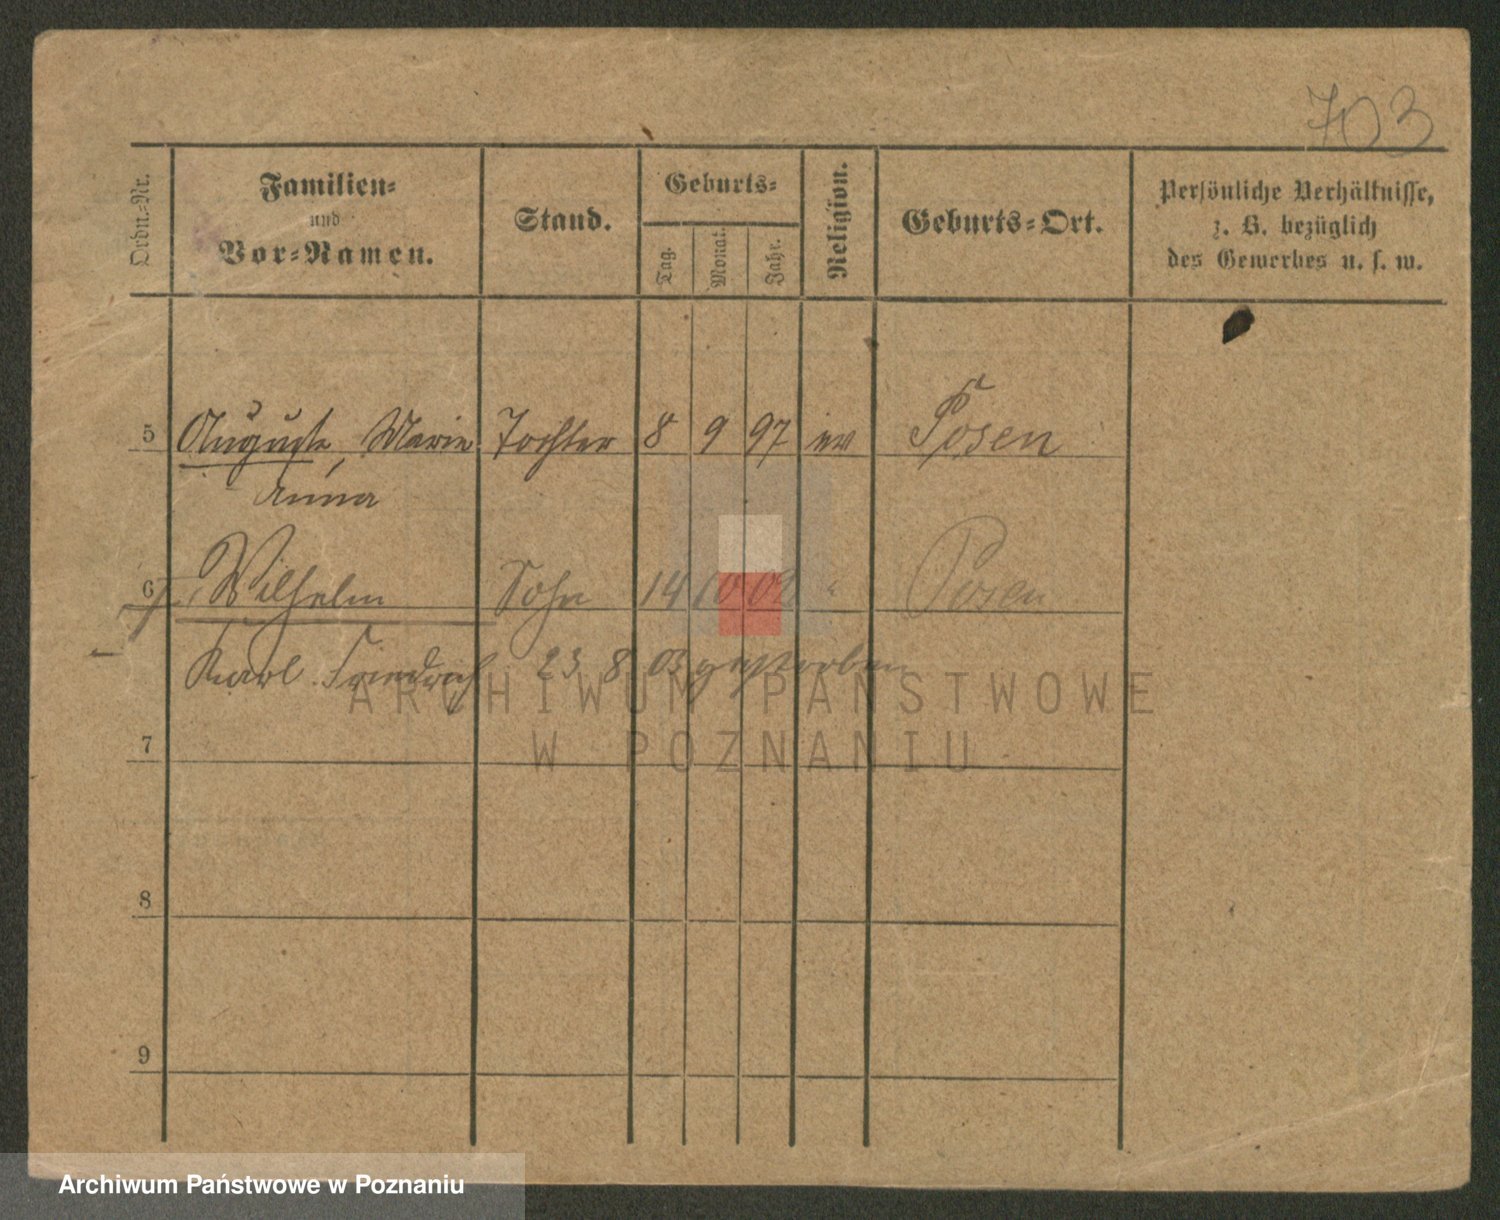 703
Ordn.-Nr. Familien- und Vor-Namen. Stand. Geburts- Tag. Monat. Jahr. Religion. Geburts-Ort. Persönliche Verhältnisse, z. B. bezüglich des Gewerbes u. s. w.
5 Auguste, Marie Tochter 8 9 97 ev Posen
Anna
6 Wilhelm Sohn 14 10 02 " Posen
Karl Friedrich 23 8 03 gestorben
7
8
9
ARCHIWUM PAŃSTWOWE
W POZNANIU
Archiwum Państwowe w Poznaniu